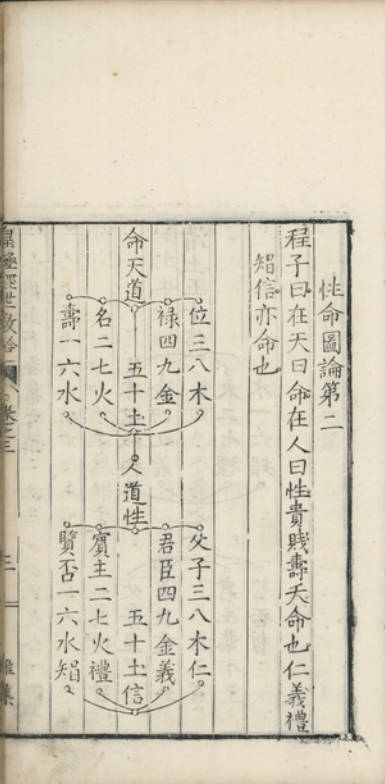 性命圖論第二
程子曰在天曰命在人曰性貴賤壽夭命也仁義禮
知信亦命也
位三八木
父子三八木仁
祿四九金
君臣四九金義
命天道
五十土
人道性
五十土信
名二七火
賓主二七火禮
壽一六水
賢否一六水知
皇極經世
卷之三